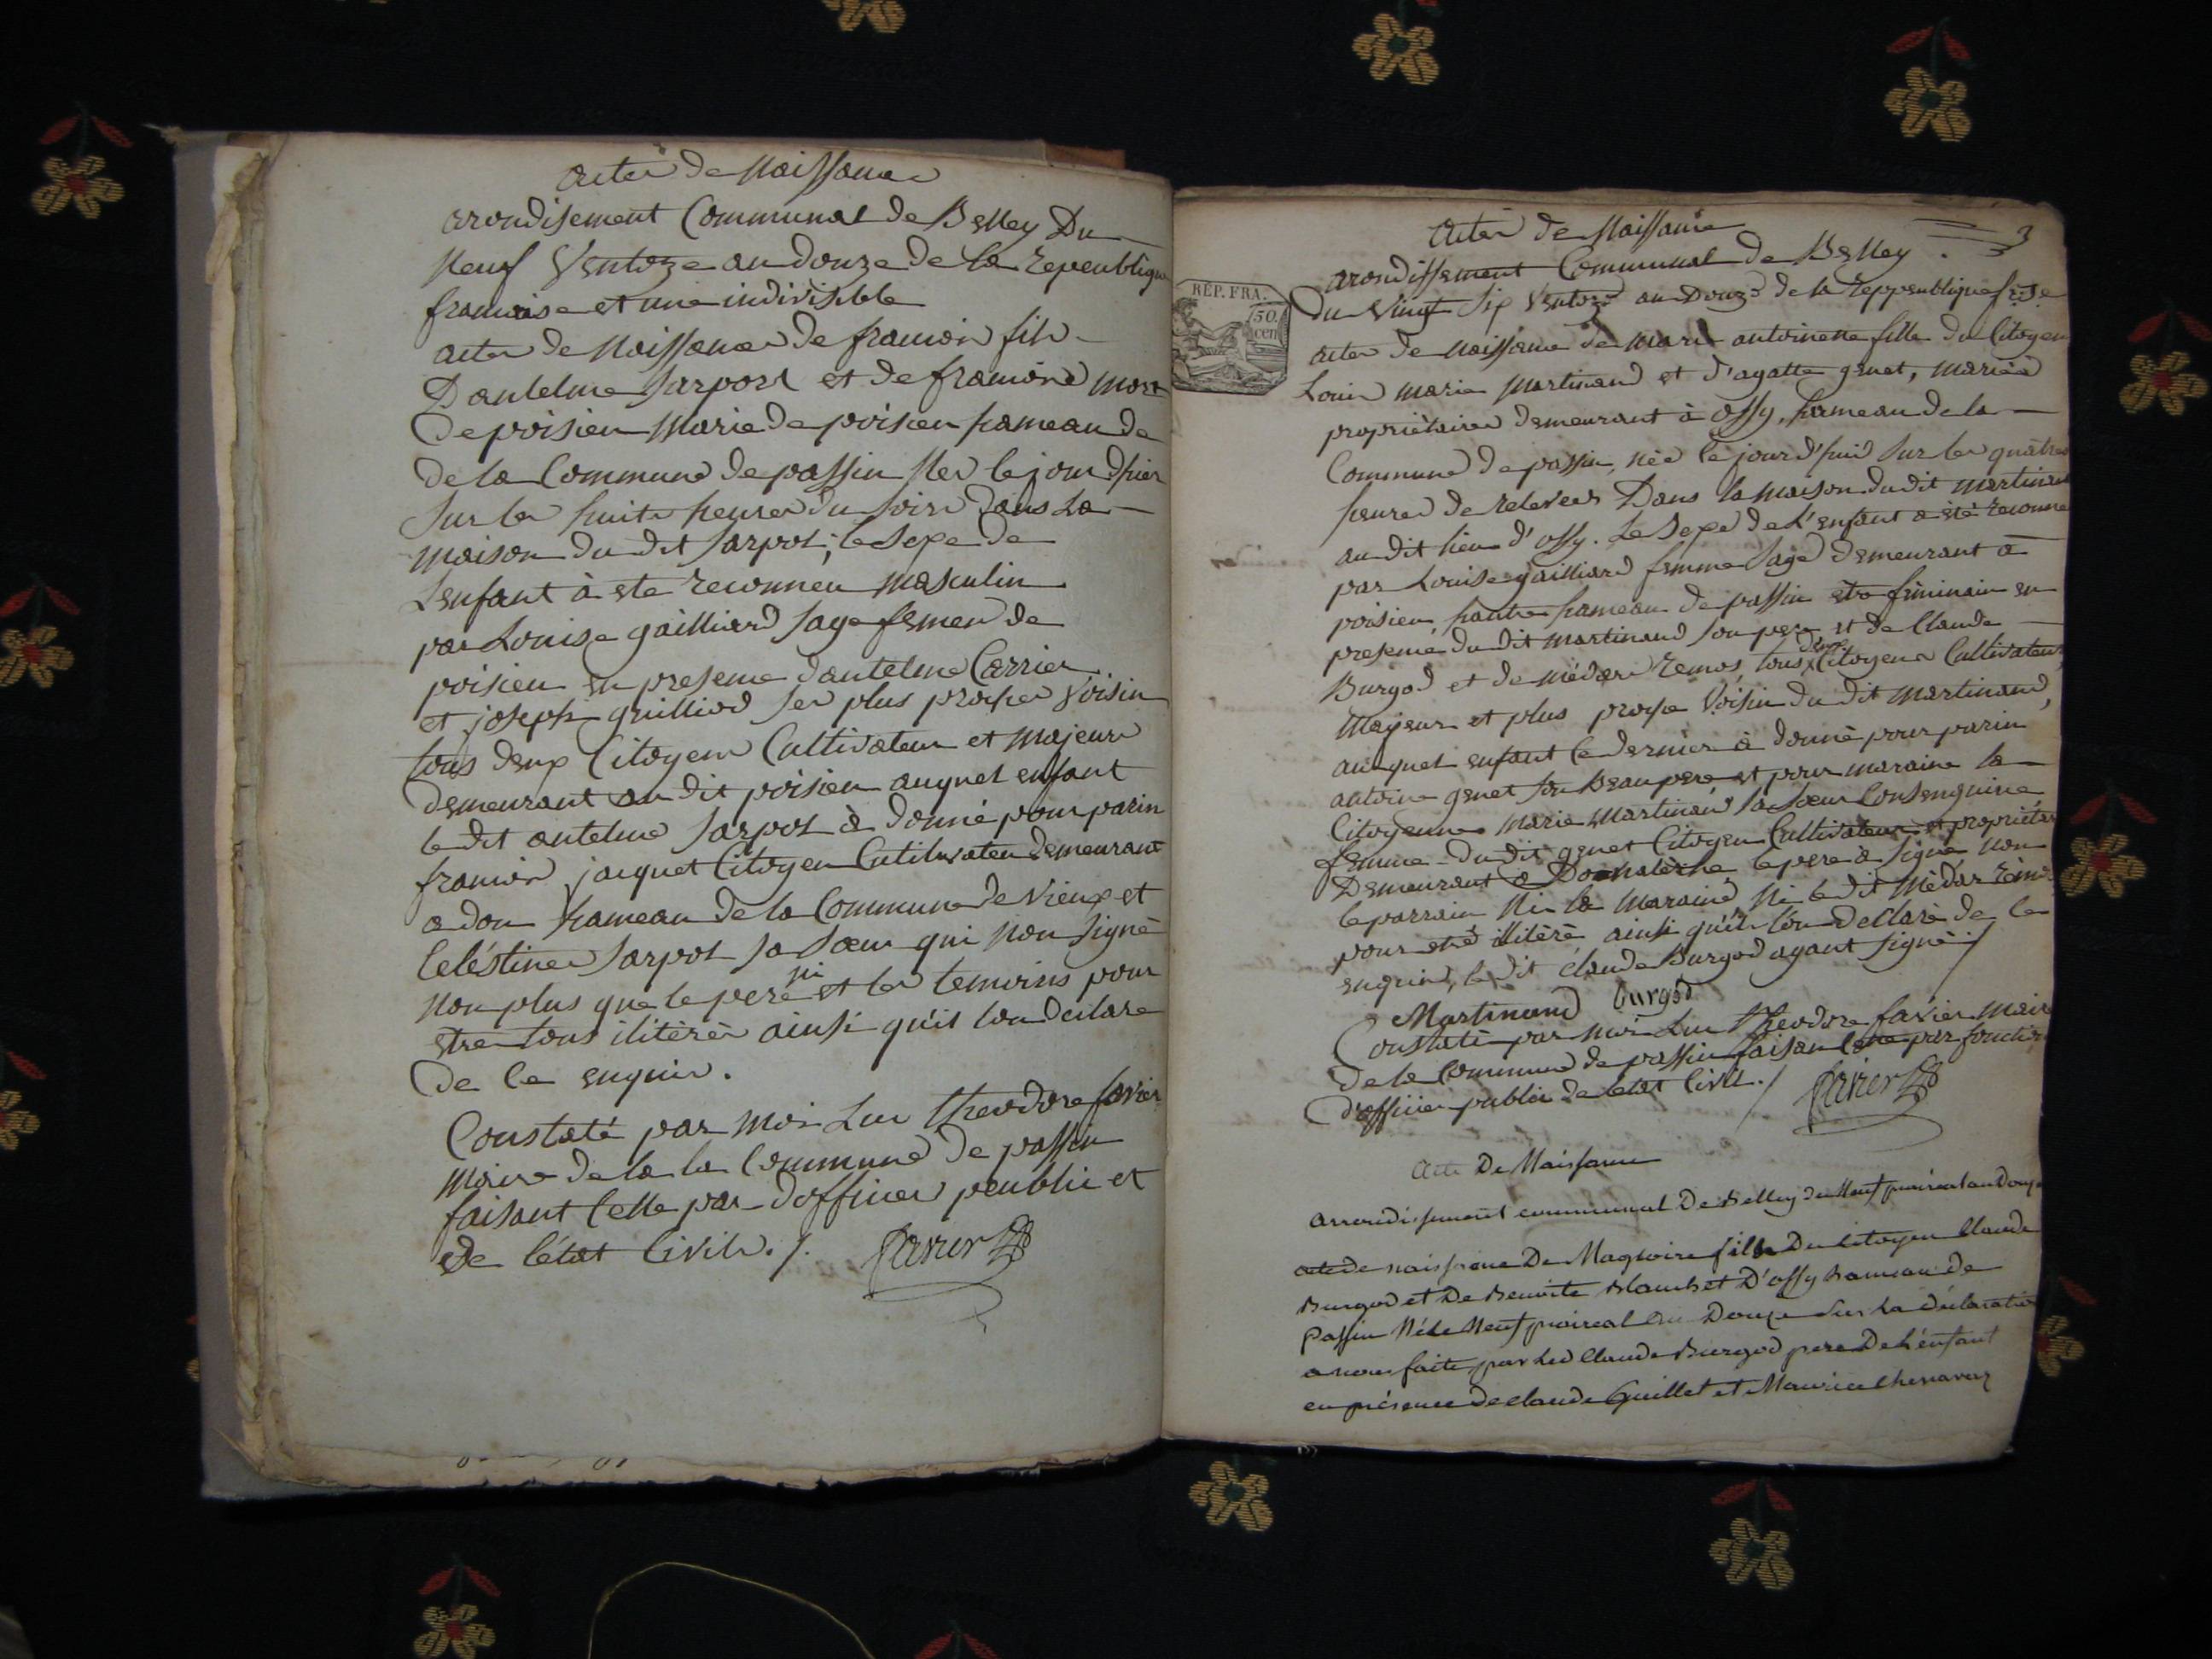 actes de Naissance
arondisement Communal de Belley Du
Neuf Ventoze an douze de la repeublique
francoise et une indivisible
actes de Naissance de francois fils
Dantelme Sarpost et de francoise mort
de poisieu Marie de poisieu hameau de
de la Commune de passin Nes le jour dhier
Sur les huits heures du soirs dans La
maison du dit Sarpot; le Sexe de
Lenfant à ete reconneu masculin
par Louise gailliard Sage femen de
poisieu en presence dantelme Carrier
et joseph guilliod Ses plus proches Voisin
tous deux Citoyens Cultivateur et majeurs
demeurant au dit poisieu auquel enfant
le dit antelme Sarpot à donné pour parin
francois jacquet Citoyen Cutilvateu demeurant
a don hameau de la Commune de Vieux et
Celéstine Sarpot Sa Sœur qui non Signè
non plus que le pere ni et les temoins pour
etre tous ilitèrès ainsi qu'il lon declare
de ce enquis.
Constaté par moi Luc theodore favier
maire de la la Commune de passin
faisant Celle par dofficier peublic et
de létat Civile ./.
favier
3
actes de Naissance
arondissement Communal de Belley
RÉP. FRA.
50.
cen
du Vingt Six Ventoze an Douze de la reppeublique frse
actes de naissance de marie antoinette fille du Citoyen
Louis marie martinand et d'agatte genet, mariés
propriètaires demeurant à ossy, hameau de la
Commune de passin, née le jourd'huis sur les quatres
heures de relevees Dans la maison du dit martinand
au dit lieu d'ossy. Le Sexe de L'enfant a étè reconneu
par Louise gailliard femme Sage demeurant à
poisieu, hautre hameau de passin etre fèminain en
presence du dit martinand Son pere et de Claude
Burgod et de médard remos, tous deux Citoyens Cultivateur
majeur et plus proche Voisin du dit martinand,
auquel enfant le dernier à donnè pour parin
antoine genet Son Beau pere et pour maraine la
Citoyenne marie Martinand Sa Sœur Consenguine
femme du dit genet Citoyen Cultivateur et propriètaire
Demeurant a le pere à Signé non
le parrain Ni la maraine Ni le dit mèdar
pour etre ilitèrè ainsi qu'ils lon declarè de ce
enquis, le dit Claude Burgod ayant Signè ./
Martinand burgod
Constatè par moi Luc theodore favier maire
de la Commune de passin faisan Celle par fonction
d'officier public de letat Civil ./
favier
Acte De Naissance
arrondissement communal De Belley du Neuf prairéal an Douze
acte de naissance De Magloire fils Du Citoyen Claude
Burgod et De Benoite Blanchet D'ossy hameau de
Passin Né Le Neuf prairéal An Douze Sur La déclaration
a nous faite par Led Claude Burgod pere De L'énfant
en présence De Claude Guillet et Maurice Chenavaz